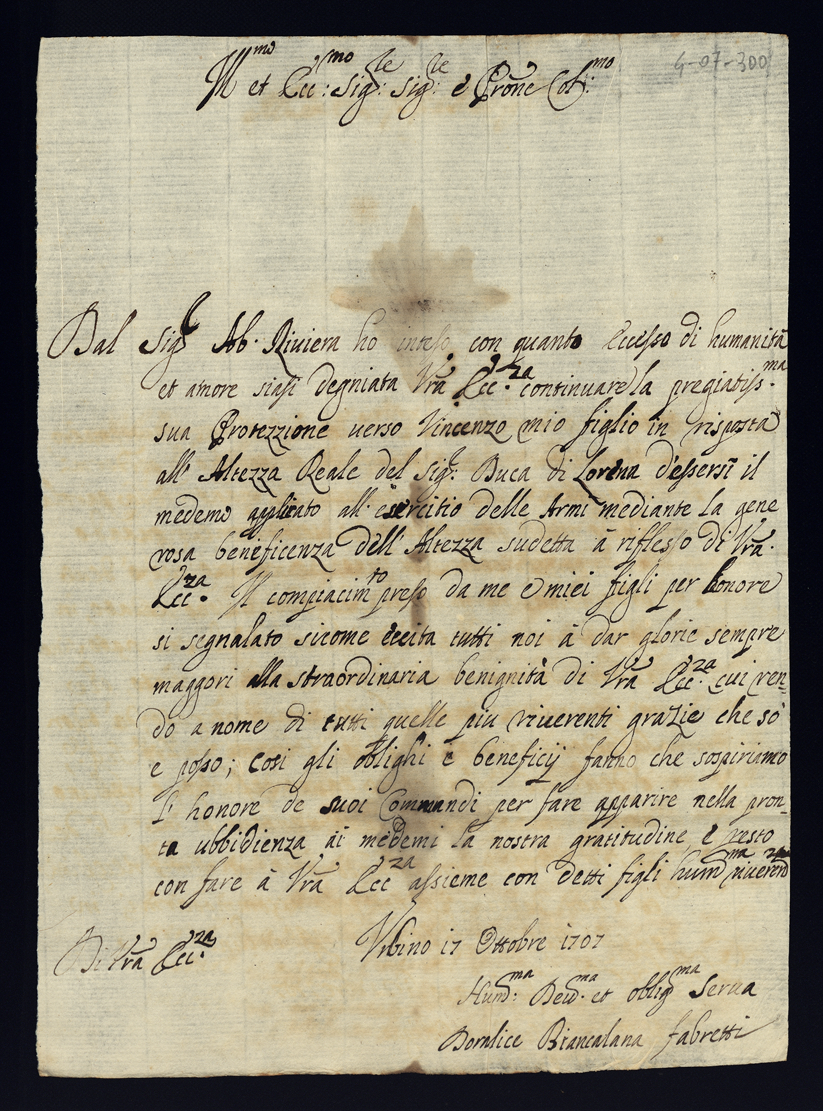 4-07-300
Ill.mo et Ecc:mo Sig:le Sig:le e Prone Col:mo
Dal Sig.r Ab. Riviera ho inteso con quanto eccesso di humanità
et amore siasi degniata Vra Ecc.za continuare la pregiatiss.ma
sua Protezzione verso Vincenzo mio figlio in risposta
all' Altezza Reale del Sig.r Duca di Lorena d'essersi il
medemo applicato all' esercitio delle Armi mediante la gene
rosa beneficenza dell' Altezza sudetta à riflesso di Vra.
Ecc.za Il compiacim.to preso da me e miei figli per honore
si segnalato sicome eccita tutti noi à dar glorie sempre
maggori alla straordinaria benignità di Vra Ecc.za cui ren-
do a nome di tutti quelle piu riverenti grazie che sò
e posso; Cosi gli oblighi e beneficij fanno che sospiriamo
l' honore de suoi Commandi per fare apparire nella pron-
ta ubbidienza ai medemi la nostra gratitudine e resto
con fare à Vra Ecc.za assieme con detti figli humd.ma riverenza
Di Vra Ecc.za
Urbino 17 Ottobre 1707
Hum:ma Dev.ma et oblig.ma Serua
Doralice Biancalana fabretti